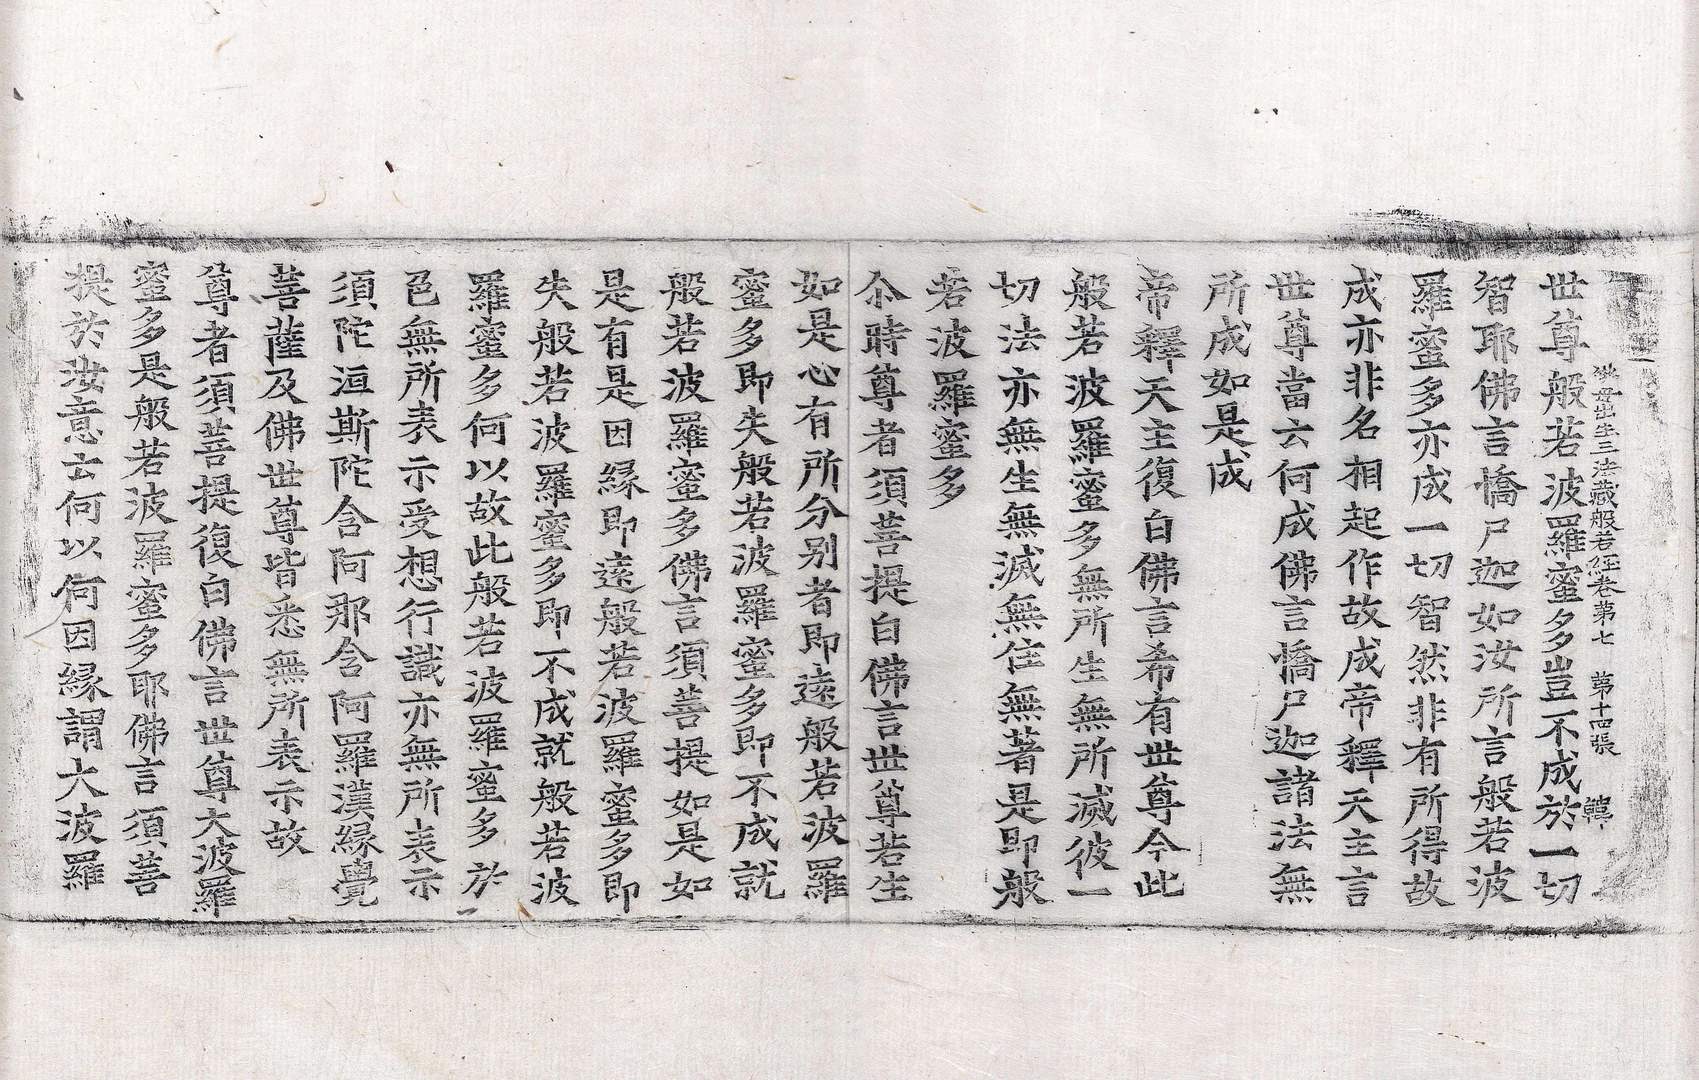 佛母出生三法藏般若經卷第七　第十四張　韓
世尊般若波羅蜜多豈不成於一切
智耶佛言憍尸迦如汝所言般若波
羅蜜多亦成一切智然非有所得故
成亦非名相起作故成帝釋天主言
世尊當云何成佛言憍尸迦諸法無
所成如是成
帝釋天主復白佛言希有世尊今此
般若波羅蜜多無所生無所滅彼一
切法亦無生無滅無住無著是即般
若波羅蜜多
尒時尊者須菩提白佛言世尊若生
如是心有所分別者即遠般若波羅
蜜多即失般若波羅蜜多即不成就
般若波羅蜜多佛言須菩提如是如
是有是因緣即遠般若波羅蜜多即
失般若波羅蜜多即不成就般若波
羅蜜多何以故此般若波羅蜜多於
色無所表示受想行識亦無所表示
須陀洹斯陀含阿那含阿羅漢緣覺
菩薩及佛世尊皆悉無所表示故
尊者須菩提復白佛言世尊大波羅
蜜多是般若波羅蜜多耶佛言須菩
提於汝意云何以何因緣謂大波羅